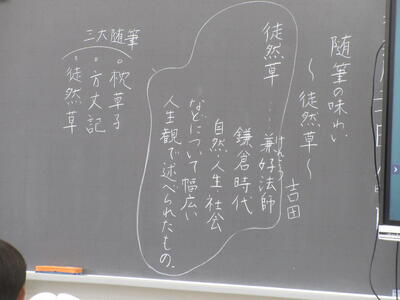 随筆の味わい
〜徒然草〜
吉田
徒然草…兼好法師
けんこう
鎌倉時代
自然・人生・社会
などについて幅広い
人生観で述べられたもの。
三大随筆
枕草子
方丈記
徒然草